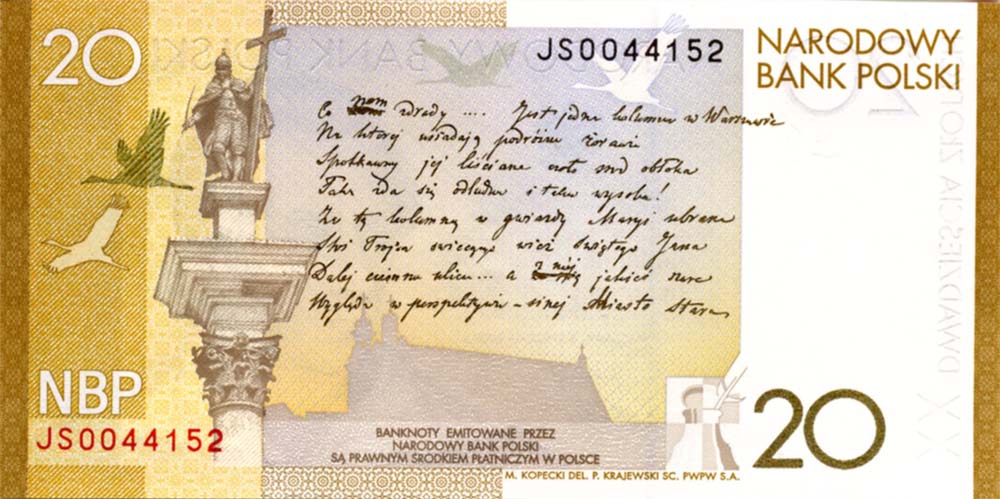 20
JS0044152
NARODOWY
BANK POLSKI
Co nam zdrady .... Jest jedna kolumna w Warszawie
Na której usiadają podróżne żurawie
Spotkawszy jej liściane czoło śród obłoka
Taka zda się odludna i taka wysoka!
Za tą kolumną w gwiazdy Maryi ubrana
Dalej ciemna ulica... a z niej jakieś szare
Wygląda w perspektywie – sinej Miasto Stare
NBP
JS0044152
BANKNOTY EMITOWANE PRZEZ
NARODOWY BANK POLSKI
SĄ PRAWNYM ŚRODKIEM PŁATNICZYM W POLSCE
M. KOPECKI DEL. P. KRAJEWSKI SC. PWPW S.A.
20